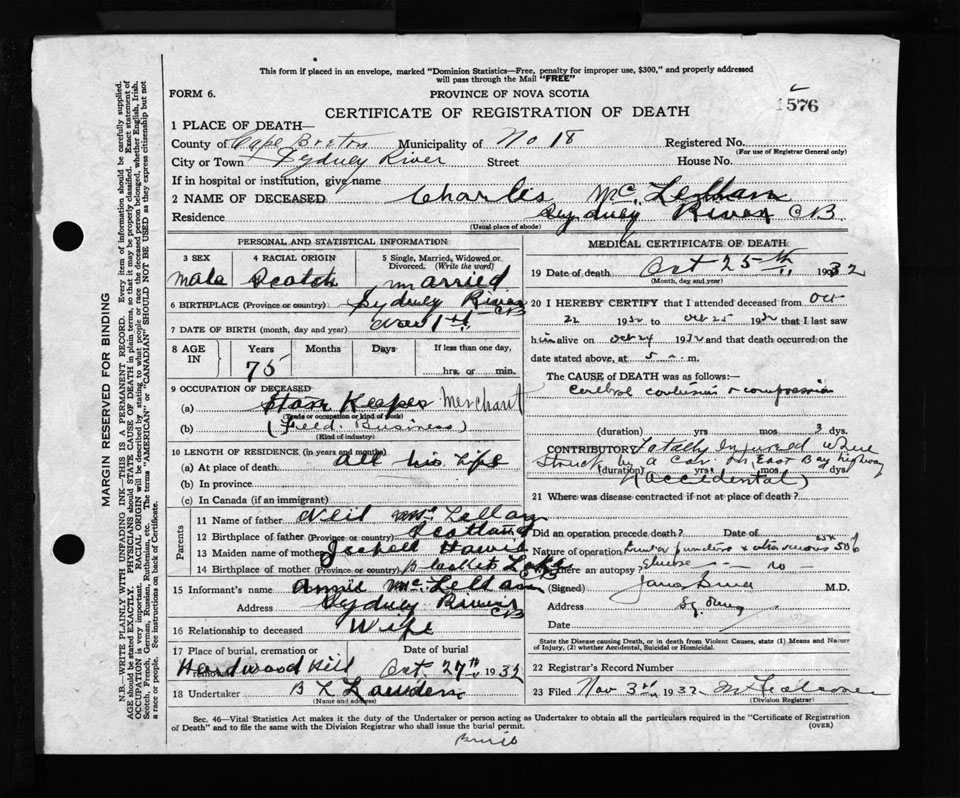 This form if placed in an envelope, marked "Dominion Statistics—Free, penalty for improper use, $300," and properly addressed
will pass through the Mail "FREE"
FORM 6.
PROVINCE OF NOVA SCOTIA
1576
CERTIFICATE OF REGISTRATION OF DEATH
1 PLACE OF DEATH—
County of Cape Breton Municipality of No 18 Registered No.
(For use of Registrar General only)
City or Town Sydney River Street House No.
If in hospital or institution, give name
2 NAME OF DECEASED Charles McLellan
Residence Sydney River CB.
(Usual place of abode)
PERSONAL AND STATISTICAL INFORMATION
3 SEX
male
4 RACIAL ORIGIN
Scotch
5 Single, Married, Widowed or
Divorced. (Write the word)
married
6 BIRTHPLACE (Province or country) Sydney River CB
7 DATE OF BIRTH (month, day and year) Nov 1st
8 AGE IN
Years
75
Months
Days
If less than one day,
hrs. or min.
9 OCCUPATION OF DECEASED
(a) Store Keeper Merchant
(Trade or occupation or kind of work)
(b) (Feed. Business)
(Kind of industry)
10 LENGTH OF RESIDENCE (in years and months)
(a) At place of death all his life
(b) In province
(c) In Canada (if an immigrant)
Parents
11 Name of father Neil McLellan
12 Birthplace of father (Province or country) Scotland
13 Maiden name of mother
14 Birthplace of mother (Province or country) Lake CB
15 Informant's name Annie McLellan
Address Sydney River CB
16 Relationship to deceased Wife
17 Place of burial, cremation or removal
Hardwood Hill
Date of burial
Oct. 27th 1932
18 Undertaker
(Name and address)
MEDICAL CERTIFICATE OF DEATH
19 Date of death Oct 25th 1932
(Month, day and year)
20 I HEREBY CERTIFY that I attended deceased from Oct
22 1932 to Oct 25 1932 that I last saw
him alive on Oct 24 1932 and that death occurred on the
date stated above, at 5 m.
The CAUSE OF DEATH was as follows:—
Cerebral contusion + compression
(duration) yrs mos 3 dys.
CONTRIBUTORY Fatally Injured when
Struck by a Car on East Bay highway
(duration) yrs mos dys
(Accidental)
21 Where was disease contracted if not at place of death?
Did an operation precede death? Date of
Nature of operation Lumbar puncture + intravenous 50%
Glucose
Was there an autopsy? no
(Signed) M.D.
Address Sydney
Date
State the Disease causing Death, or in death from Violent Causes, state (1) Means and Nature
of Injury, (2) whether Accidental, Suicidal or Homicidal.
22 Registrar's Record Number
23 Filed Nov 3rd 1932
(Division Registrar)
Sec. 46—Vital Statistics Act makes it the duty of the Undertaker or person acting as Undertaker to obtain all the particulars required in the "Certificate of Registration
of Death" and to file the same with the Division Registrar who shall issue the burial permit.
(OVER)
MARGIN RESERVED FOR BINDING
N.B.—WRITE PLAINLY WITH UNFADING INK—THIS IS A PERMANENT RECORD. Every item of information should be carefully supplied.
AGE should be stated EXACTLY. PHYSICIANS should state CAUSE OF DEATH in plain terms, so that it may be properly classified. Exact statement of
OCCUPATION is very important. RACIAL ORIGIN will be described by stating to what people or race the deceased person belonged, whether English, Irish,
Scotch, French, German, Russian, Ruthenian, etc. The terms "AMERICAN" or "CANADIAN" SHOULD NOT BE USED as they express citizenship but not
a race or people. See instructions on back of Certificate.